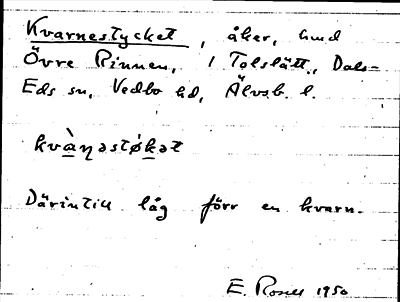 Kvarnestycket, åker, hmd
Övre Rinnen, i Tolslätt, Dals-
Eds sn, Vedbo hd, Älvsb. l.
kvàꞃəstǿkət
Därintill låg förr en kvarn.
E. Rosell 1950